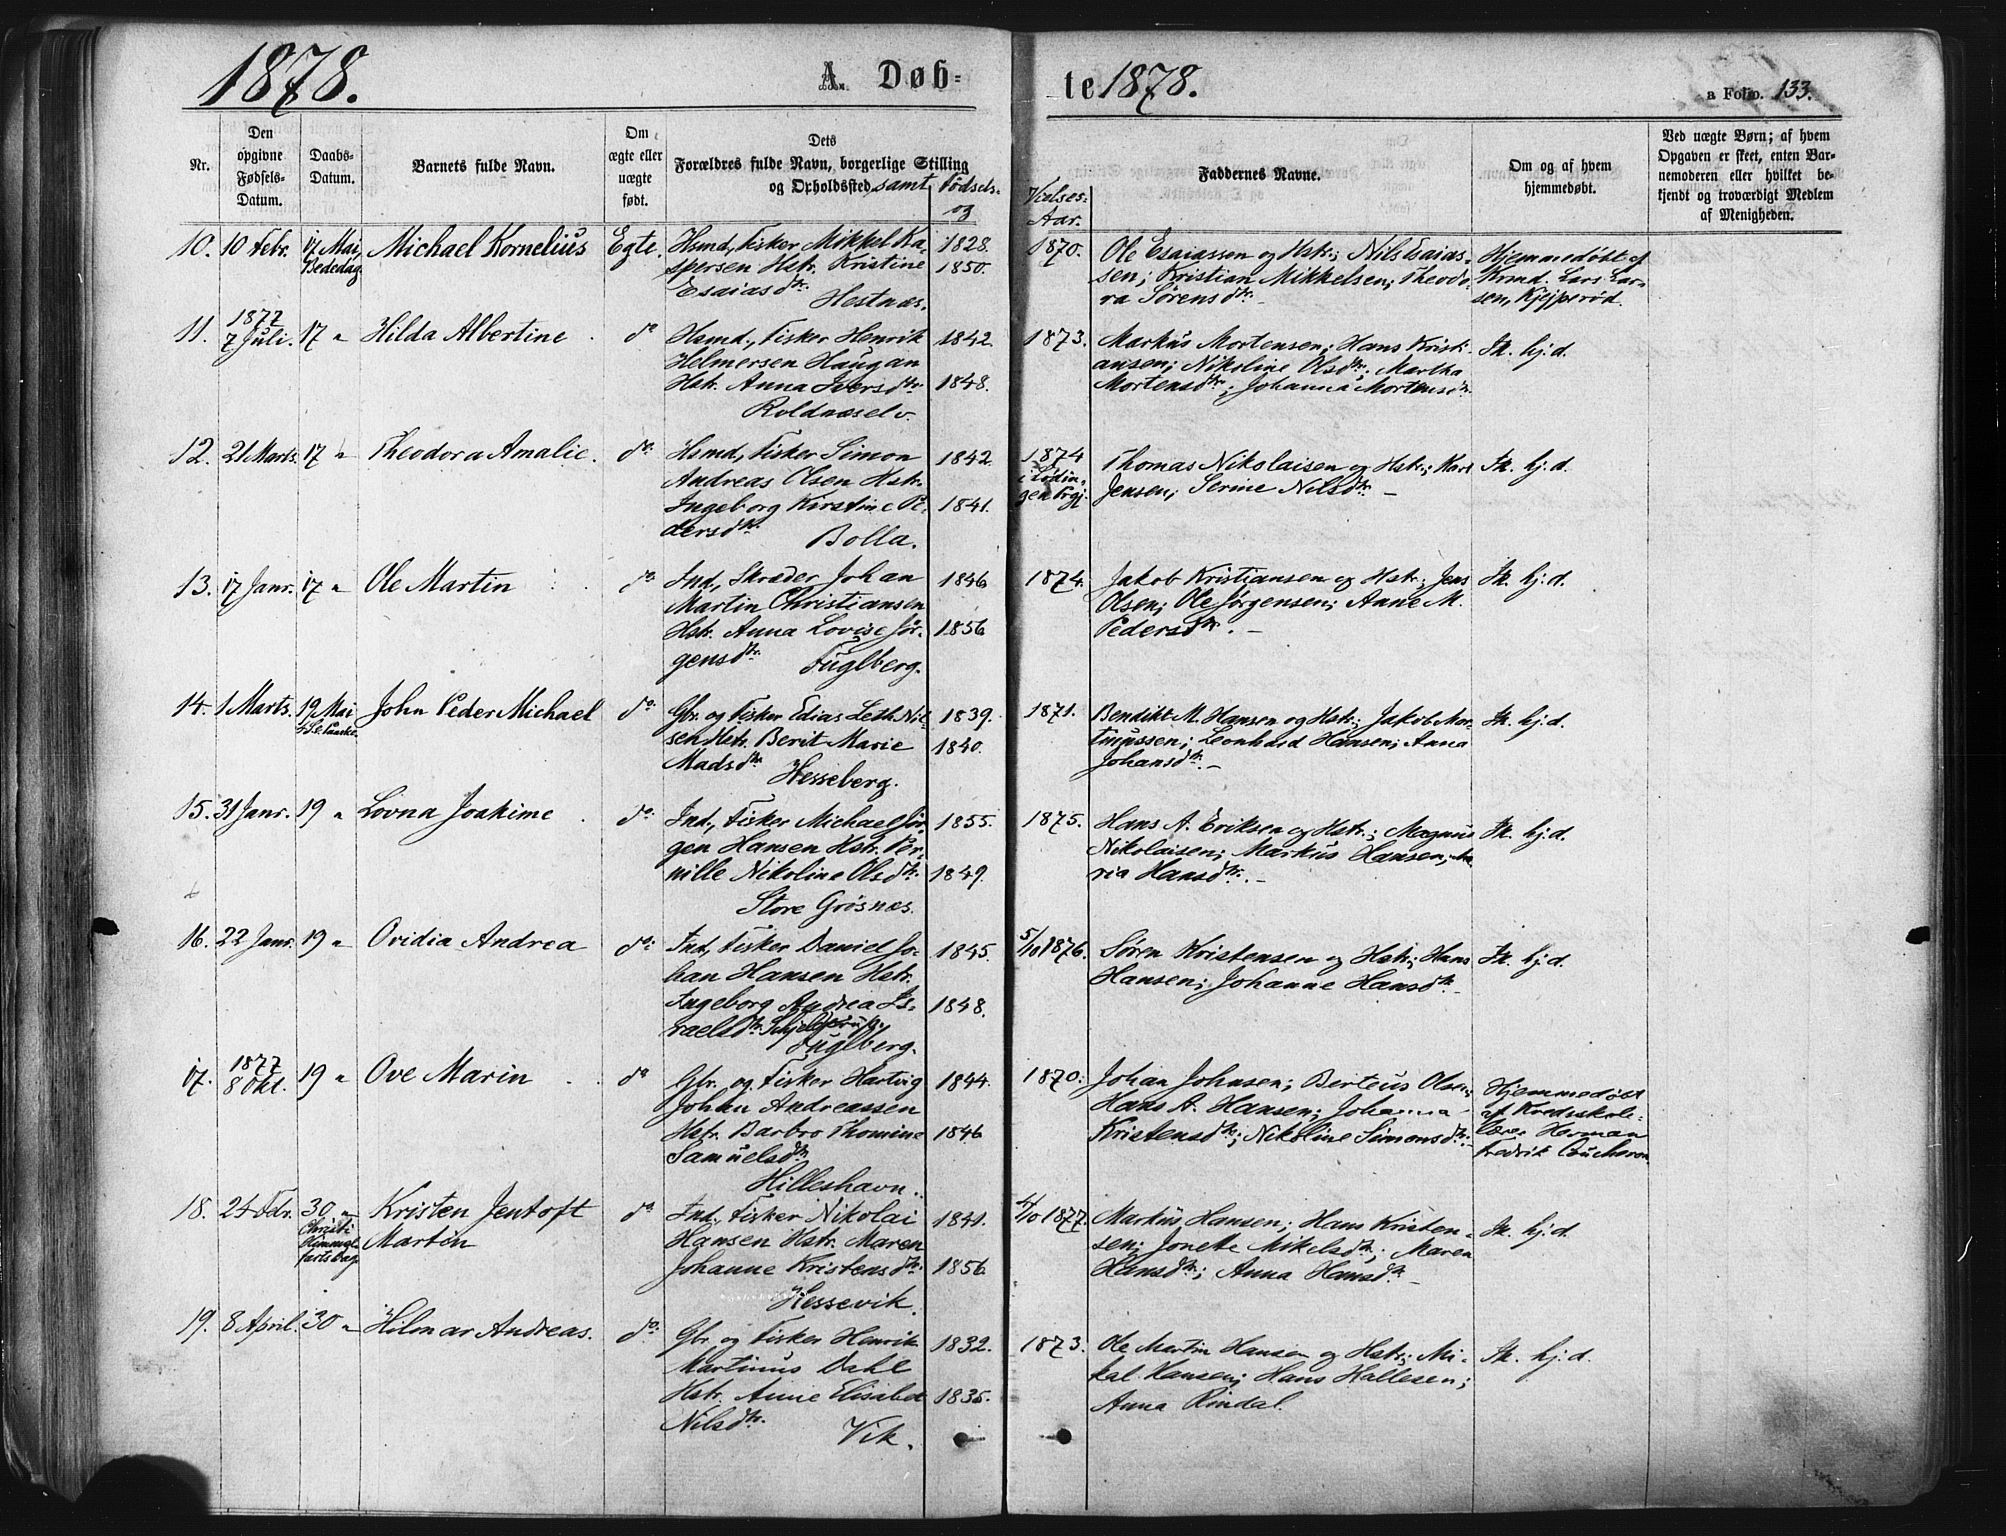 1878. A. Døb-
te 1878.
a Folio. 133.
Nr.
Den opgivne Fødsels-Datum.
Daabs-Datum.
Barnets fulde Navn.
Om ægte eller uægte født.
Dets Forældres fulde Navn, borgerlige Stilling og Opholdssted samt Fødsels- og
Vielses-Aar.
Faddernes Navne.
Om og af hvem hjemmedøbt.
Ved uægte Børn; af hvem
Opgaven er skeet, enten Bar-
nemoderen eller hvilket be-
kjendt og troværdigt Medlem
af Menigheden.
10. 10 Febr. 17 Mai, Bededag Michael Kornelius Egte.
Hsmd., Fisker Mikkel Ka- 1828.
spersen Hstr. Kristine 1850.
Esaiasdtr.
Hestnæs.
1870. Ole Esaiassen og Hstr.; Nils Esaias-
sen; Kristian Mikkelsen; Theodo-
ra Sørensdtr. –
Hjemmedøbt af
Krmd. Lars Lar-
sen, Kjejperød.
11. 1877 7 Juli. 17 " Hilda Albertine do
Hsmd., Fisker Henrik 1842.
Helmersen Haugan
Hstr. Anna Iversdtr. 1848.
Roldnæselv.
1873. Markus Mortensen; Hans Kristi-
ansen; Nikoline Olsdtr.; Martha
Mortensdtr.; Johanna Mortensdtr.
Ik. hj. d.
12. 21 Marts. 17 " Theodora Amalie. do.
Hsmd., Fisker Simon 1842.
Andreas Olsen Hstr.
Ingeborg Kirstine Pe- 1841.
dersdtr.
Bolla.
1874 i Lødin-
gen Prgj.
Thomas Nikolaisen og Hstr.; Karl
Jensen; Serine Nilsdtr. –
Ik. hj. d.
13. 17 Janr. 17 " Ole Martin do.
Ind., Skræder Johan 1846
Martin Christiansen
Hstr. Anna Lovise Jør- 1856
gensdtr. Fuglberg.
1874. Jakob Kristiansen og Hstr.; Jens
Olsen; Ole Jørgensen; Anne M.
Pedersdtr. –
Ik. hj. d.
14. 1 Marts. 19 Mai 4 S. e. Paaske. John Peder Michael do.
Gbr. og Fisker Edias Leth Nil- 1839.
sen Hstr. Berit Marie 1840.
Madsdtr.
Hesseberg.
1871. Bendikt M. Hansen og Hstr.; Jakob Mar-
tinussen; Leonhard Hansen; Anna
Johansdtr. –
Ik. hj. d.
15. 31 Janr. 19 " Lovna Joakime do.
Ind., Fisker Michael Jør- 1855.
gen Hansen Hstr. Per-
nille Nikoline Olsdtr. 1849.
Store Grøsnæs.
1875. Hans A. Eriksen og Hstr.; Magnus
Nikolaisen; Markus Hansen; Ma-
ria Hansdtr. –
Ik. hj. d.
16. 22 Janr. 19 " Ovidia Andrea do.
Ind., Fisker Daniel Jo- 1845.
han Hansen Hstr.
Ingeborg Andrea Is- 1848.
raelsdtr.
Fuglberg.
5/10 1876. Søren Kristensen og Hstr.; Hans
Hansen; Johanne Hansdtr. –
Ik. hj. d.
17. 1877 8 Okt. 19 " Ove Marin do
Gbr. og Fisker Hartvig 1844.
Johan Andreassen
Hstr. Barbro Thomine 1846
Samuelsdtr.
Hilleshavn.
1870. Johan Johnsen; Berteus Olsen;
Hans A. Hansen; Johanna
Kristensdtr.; Nikoline Simonsdtr. –
Hjemmedøbt
af Kredsskole-
lærer Herman
Fredrik Coucheron
18. 24 Febr. 30 " Christi Himmel-
farts Dag
Kristen Jentoft
Martin
do
Ind., Fisker Nikolai 1841.
Hansen Hstr. Maren
Johanne Kristensdtr. 1856
Hessevik.
4/10 1877. Markus Hansen; Hans Kristen-
sen; Jonette Mikelsdtr.; Maren
Hansdtr.; Anna Hansdtr. –
Ik. hj. d.
19. 8 April. 30 " Hilmar Andreas. do.
Gbr. og Fisker Henrik 1832.
Martinus Dahl
Hstr. Anne Elisabet 1835.
Nilsdtr.
Vik.
1873. Ole Martin Hansen og Hstr.; Mi-
kal Hansen; Hans Hallesen;
Anna Rindal.
Ik. hj. d.